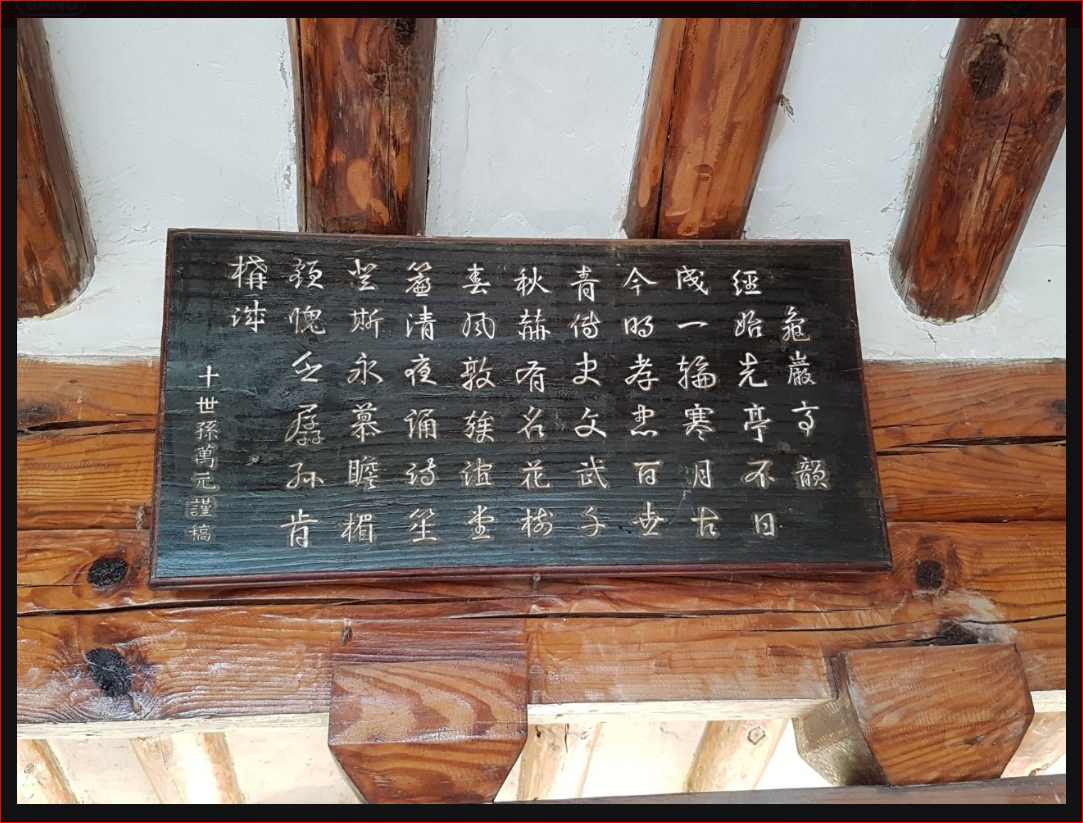 BAND
龜巖亭韻
經始先亭不日
成一輪寒月古
今明孝忠百世
青傳史文武千
秋赫有名花樹
春風敦族誼堂
簷清夜誦詩笙
登斯永慕瞻楣
額愧乏孱孫肯
構誠
十世孫萬元謹稿